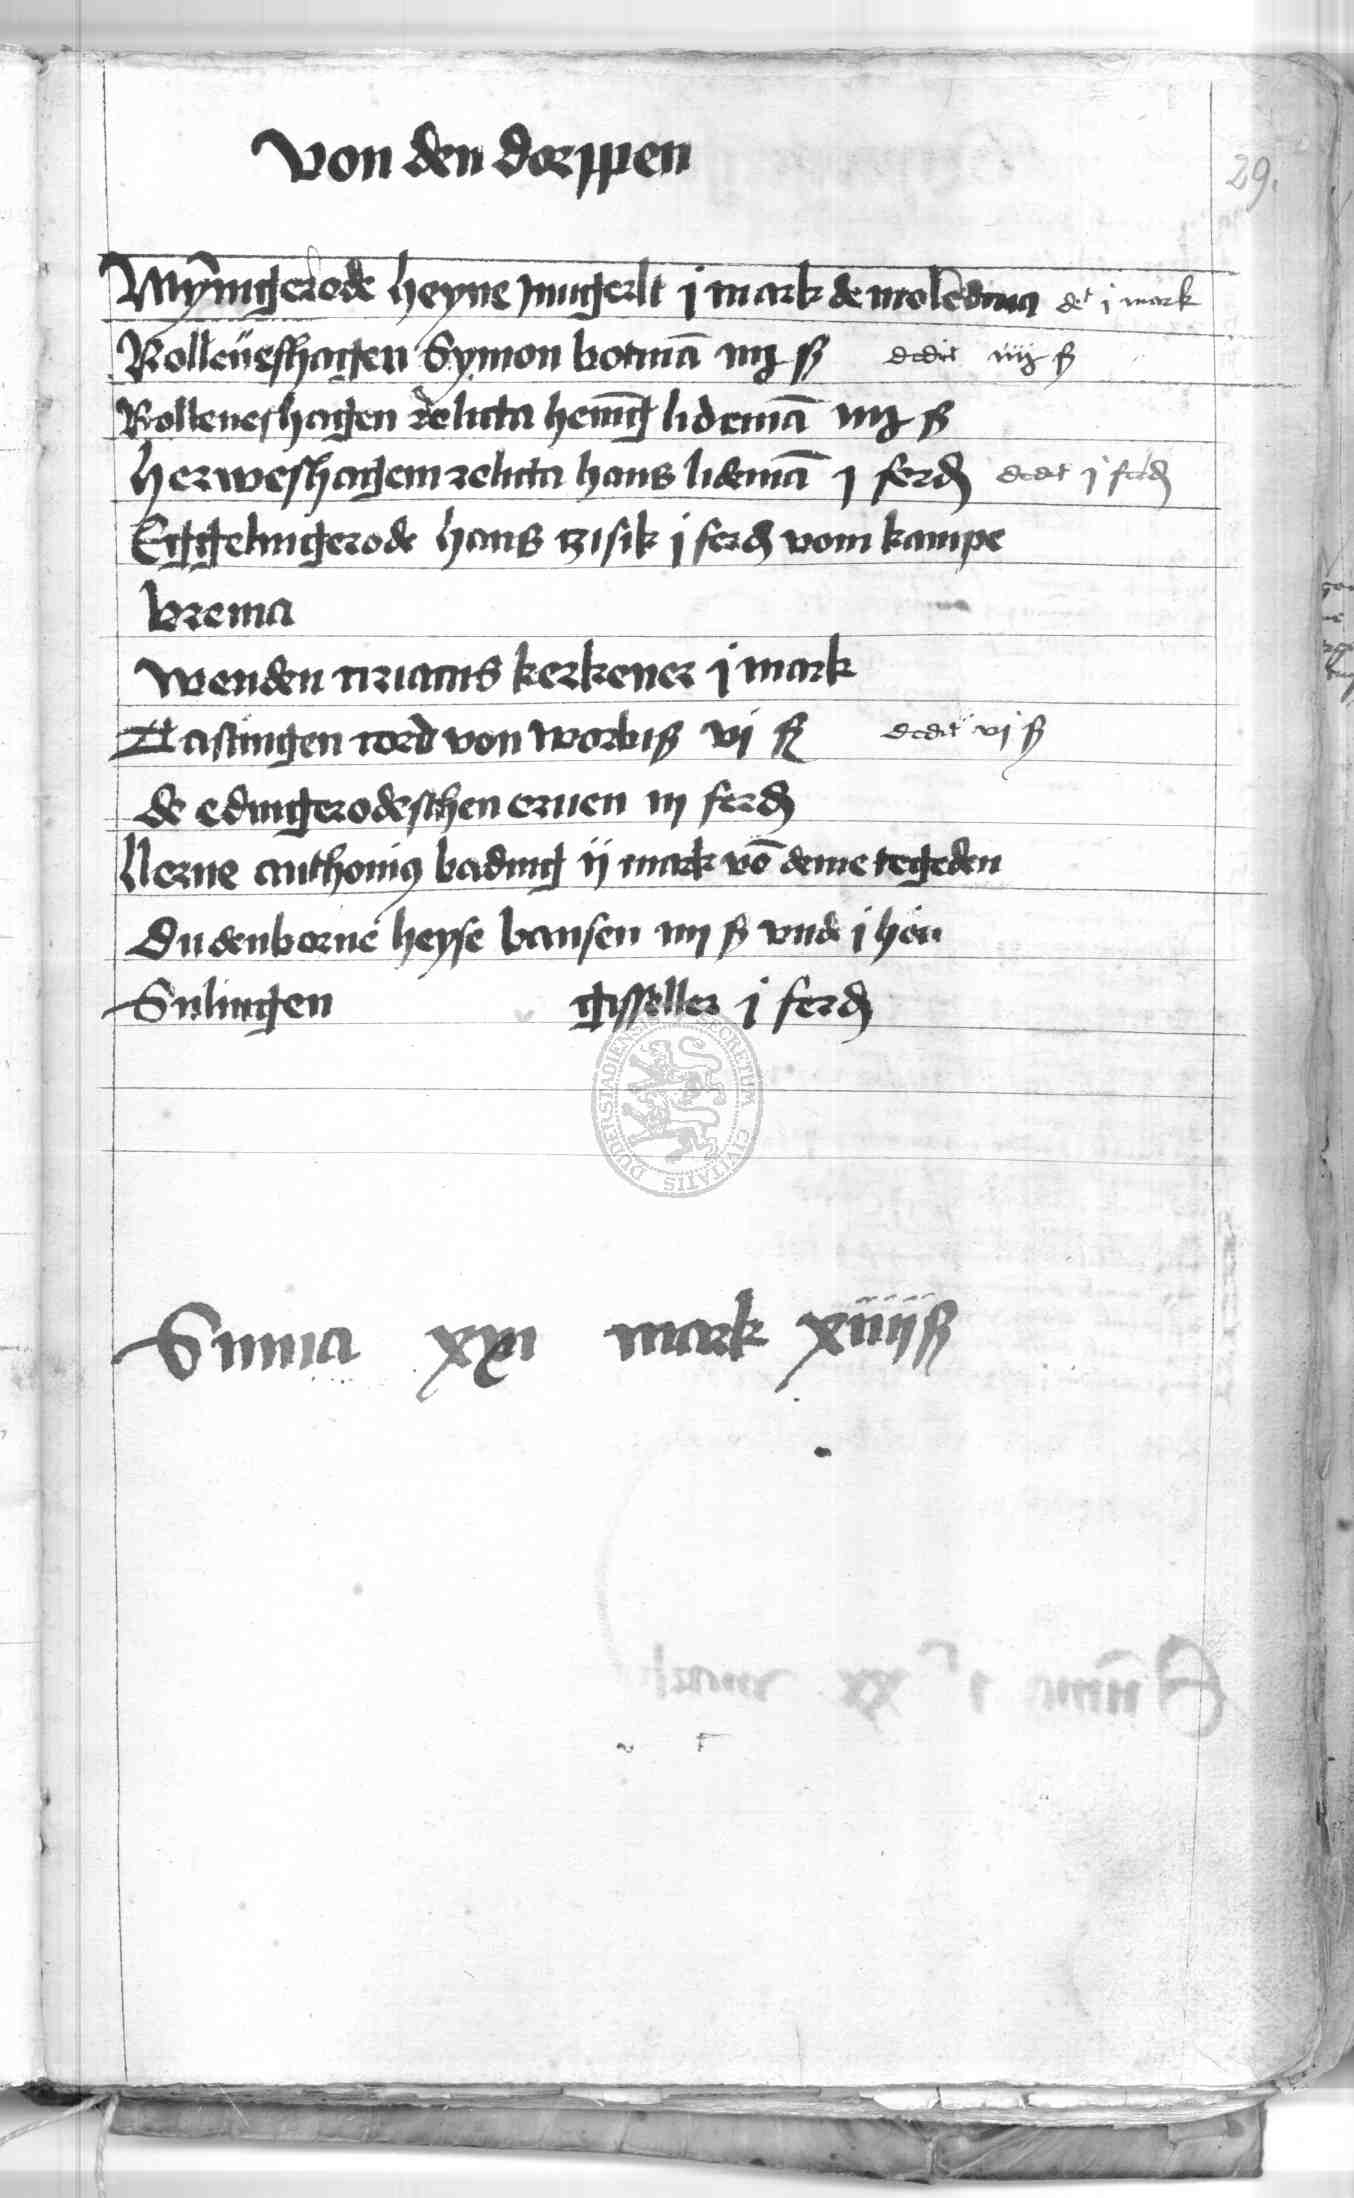 von den dorppen
29.
Mȳngerode heyne Jungerlt j mark de molēdina det j mark
Rolleueshagen Symon botmā iiij ß dedit iiij ß
Rolleueshagen relicta henīg lidemā iiij ß
herweshagem relicta hans lidemā j ferd dedit j ferd
Eggelingerode hans tzisik j ferd vom kampe
brema
wenden ciriacus kerkener j mark
Tastingen cord von worbis vj ß dedit vj ß
de edingerodeschen eruen iij ferd
Nerne anthonius bading ij mark vō deme tegeden
Dudenborne heyse bansen iiij ß vnde j hon
Sulingen gisseller j ferd
SECRETUM CIVITATIS DUDERSTADIENSIS
Suma xxi mark xiiij ß